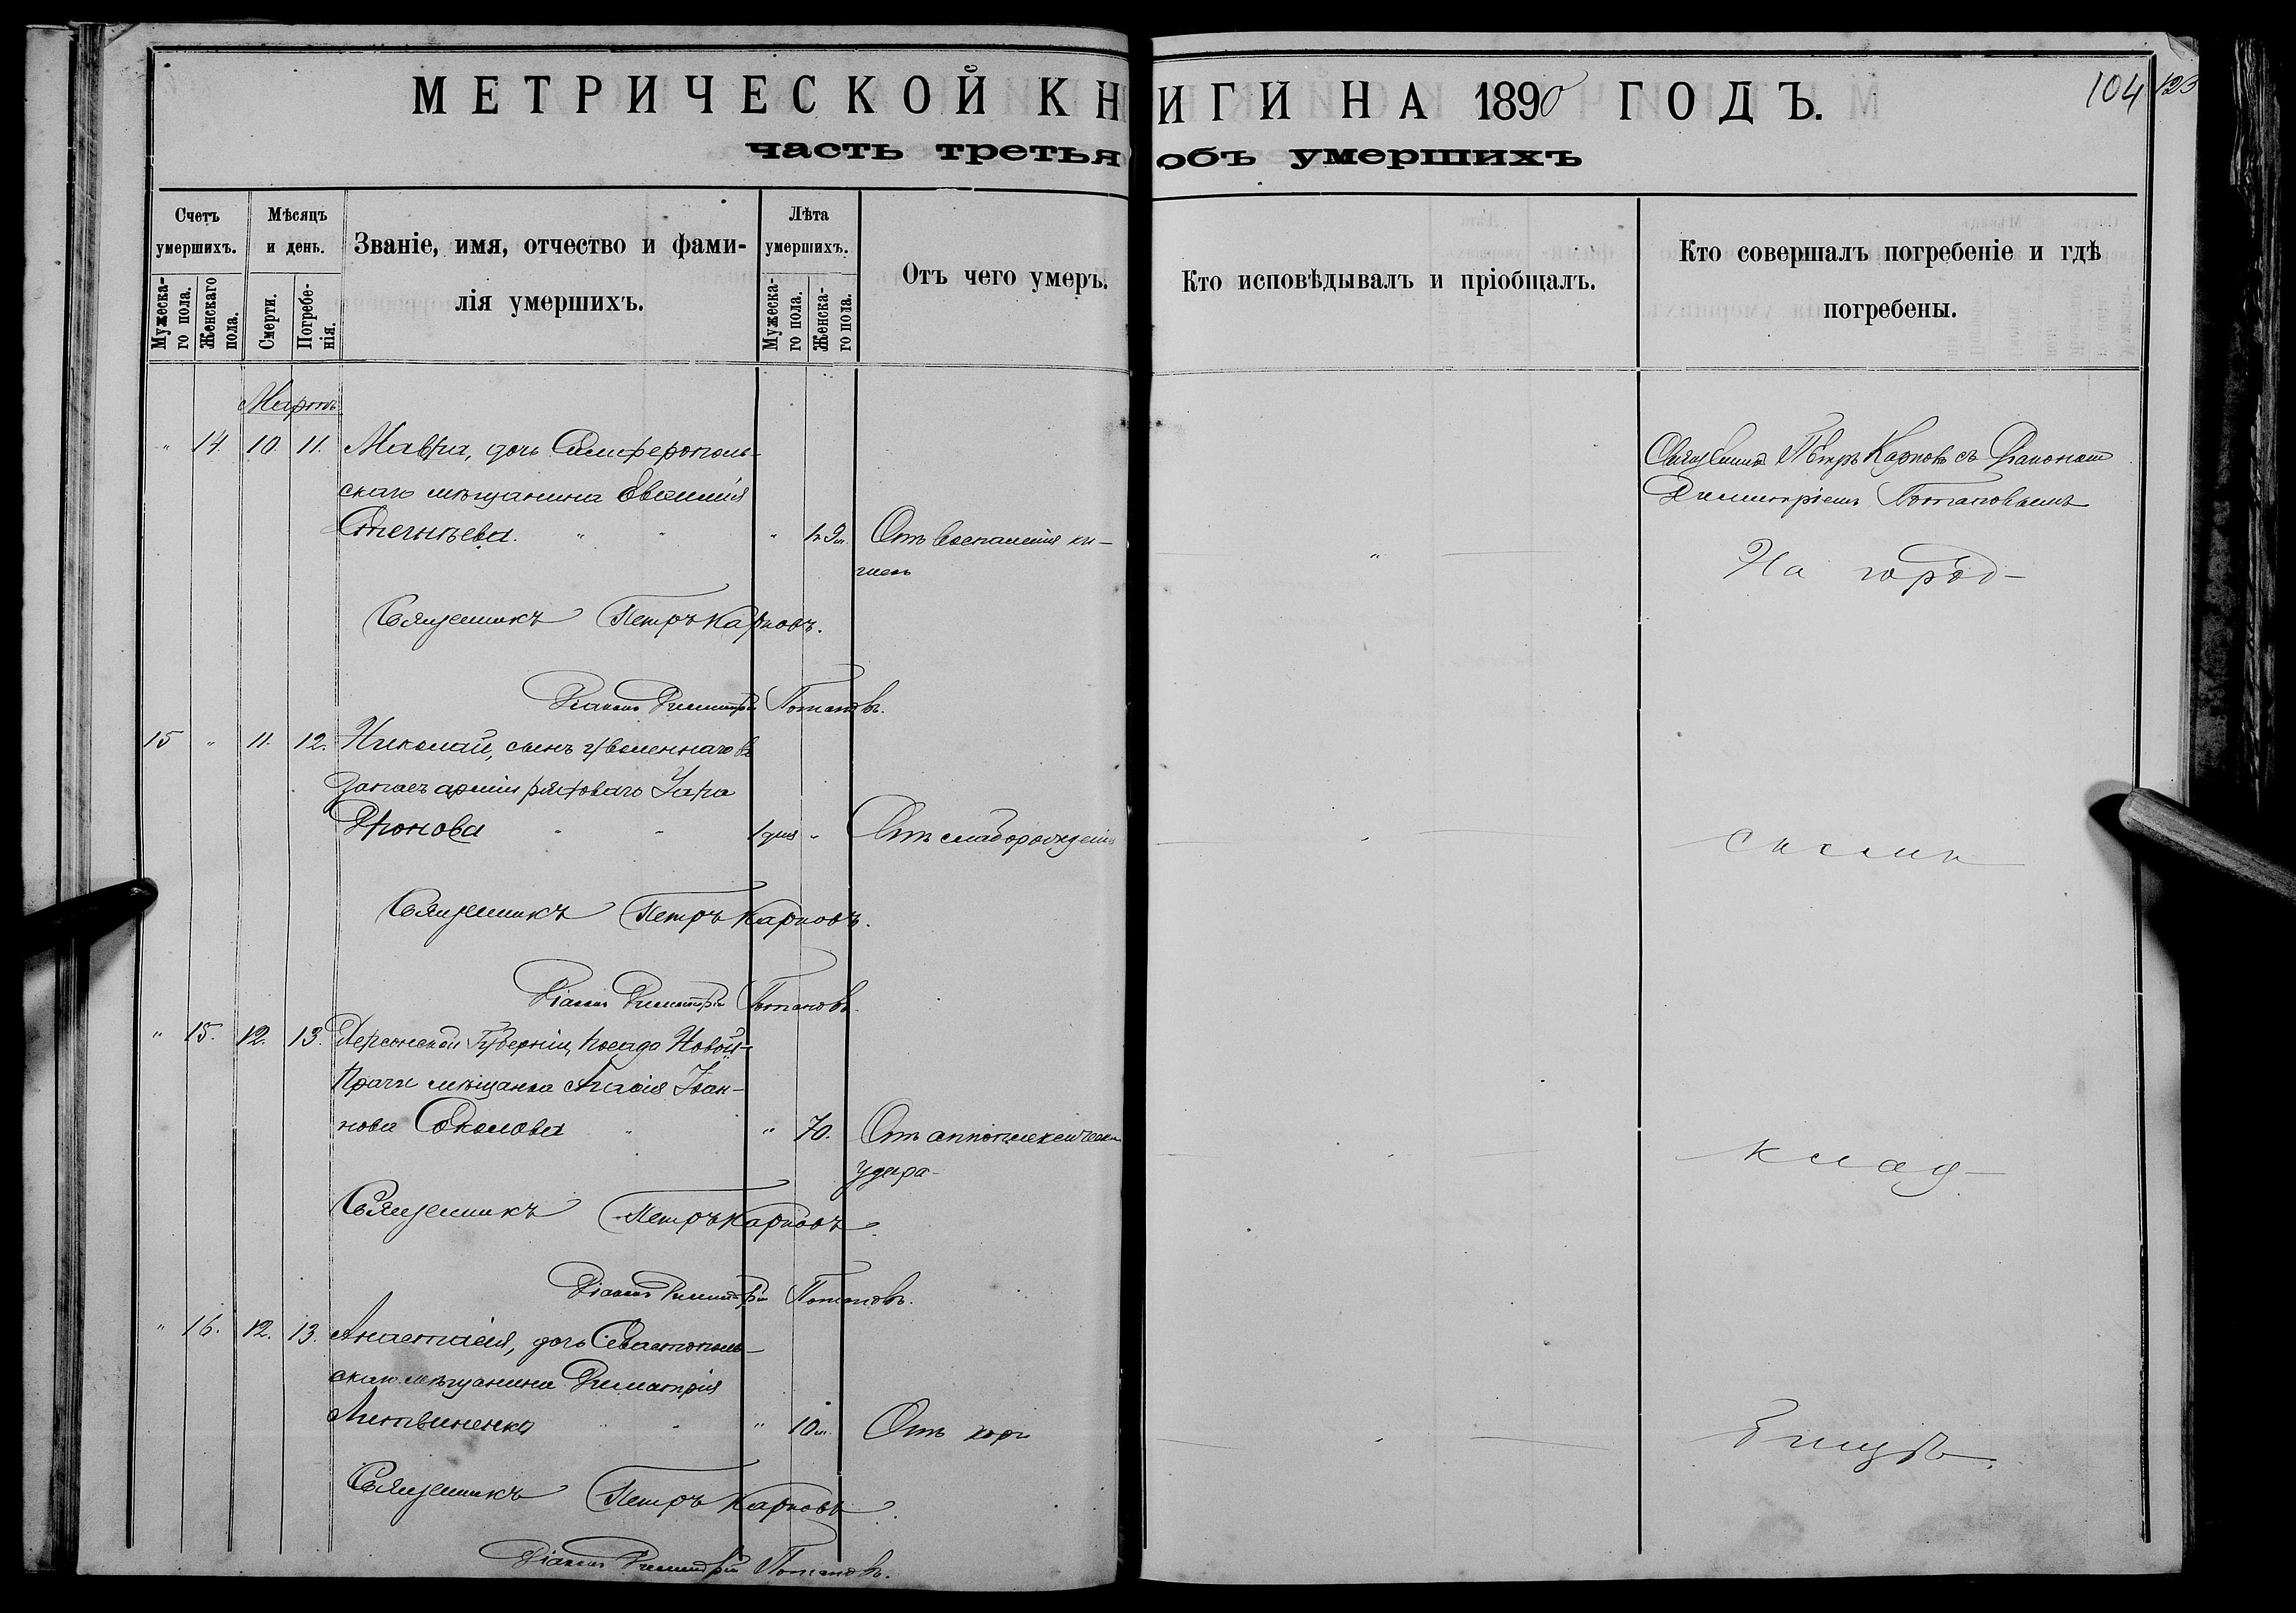 МЕТРИЧЕСКОЙ КНИГИ НА 1890 ГОДЪ.
104
123
часть третья объ умершихъ
Счетъ умершихъ.
Мужескаго пола.
Женскаго пола.
Мѣсяцъ и день.
Смерти.
Погребенія.
Званіе, имя, отчество и фами-
лія умершихъ.
Лѣта умершихъ.
Мужескаго пола.
Женскаго пола.
Отъ чего умеръ.
Кто исповѣдывалъ и пріобщалъ.
Кто совершалъ погребеніе и гдѣ
погребены.
Мартъ
" 14. 10. 11. Мавра, дочь Симферополь-
скаго мѣщанина Евфимія
" Отъ воспаленія ки-
шекъ
Священникъ Петръ Карповъ съ Діакономъ
Димитріемъ Потаповымъ
На город-
Священникъ Петръ Карповъ.
Діаконъ Димитрій Потаповъ.
15 " 11. 12. Николай, сынъ уволеннаго въ
запасъ арміи рядоваго Уара
Дронова " " 1 дня " Отъ слаборожденія
скомъ
Священникъ Петръ Карповъ.
Діаконъ Димитрій Потаповъ.
" 15. 12. 13. Херсонской Губерніи, посада Новой-
Праги мѣщанка Агафія Іоан-
нова Соколова " " 70. Отъ апоплексическ.
удара
клад-
Священникъ Петръ Карповъ.
Діаконъ Димитрій Потаповъ.
" 16. 12. 13. Анастасія, дочь Севастополь-
скаго мѣщанина Димитрія
Литвиненко " " " 10 м. Отъ кори
бищѣ.
Священникъ Петръ Карповъ.
Діаконъ Димитрій Потаповъ.